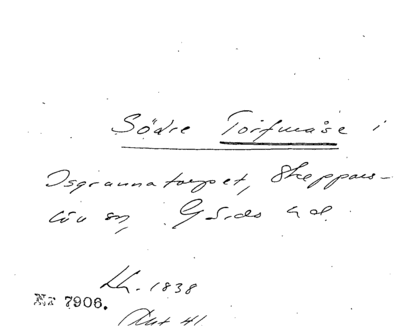 Södre Torfmåse i
Isgrannatorpet, Skepps-
löv sn, Gärds hd.
Lh. 1838
Nr 7906.
(Akt 41